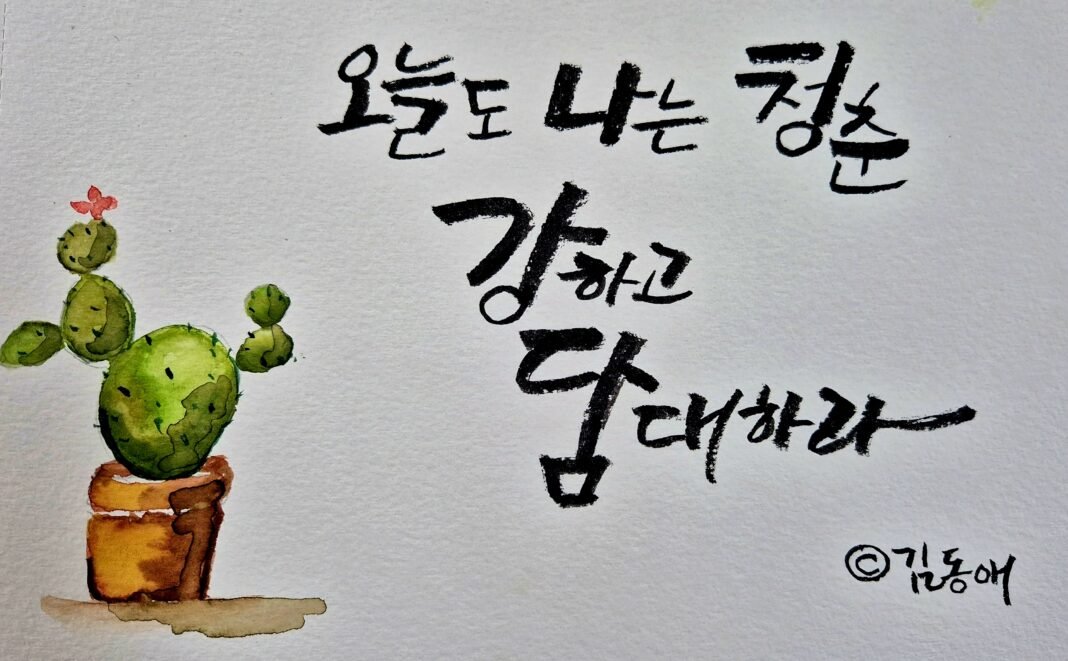 오늘도 나는 청춘
강하고
담대하라
©김동애